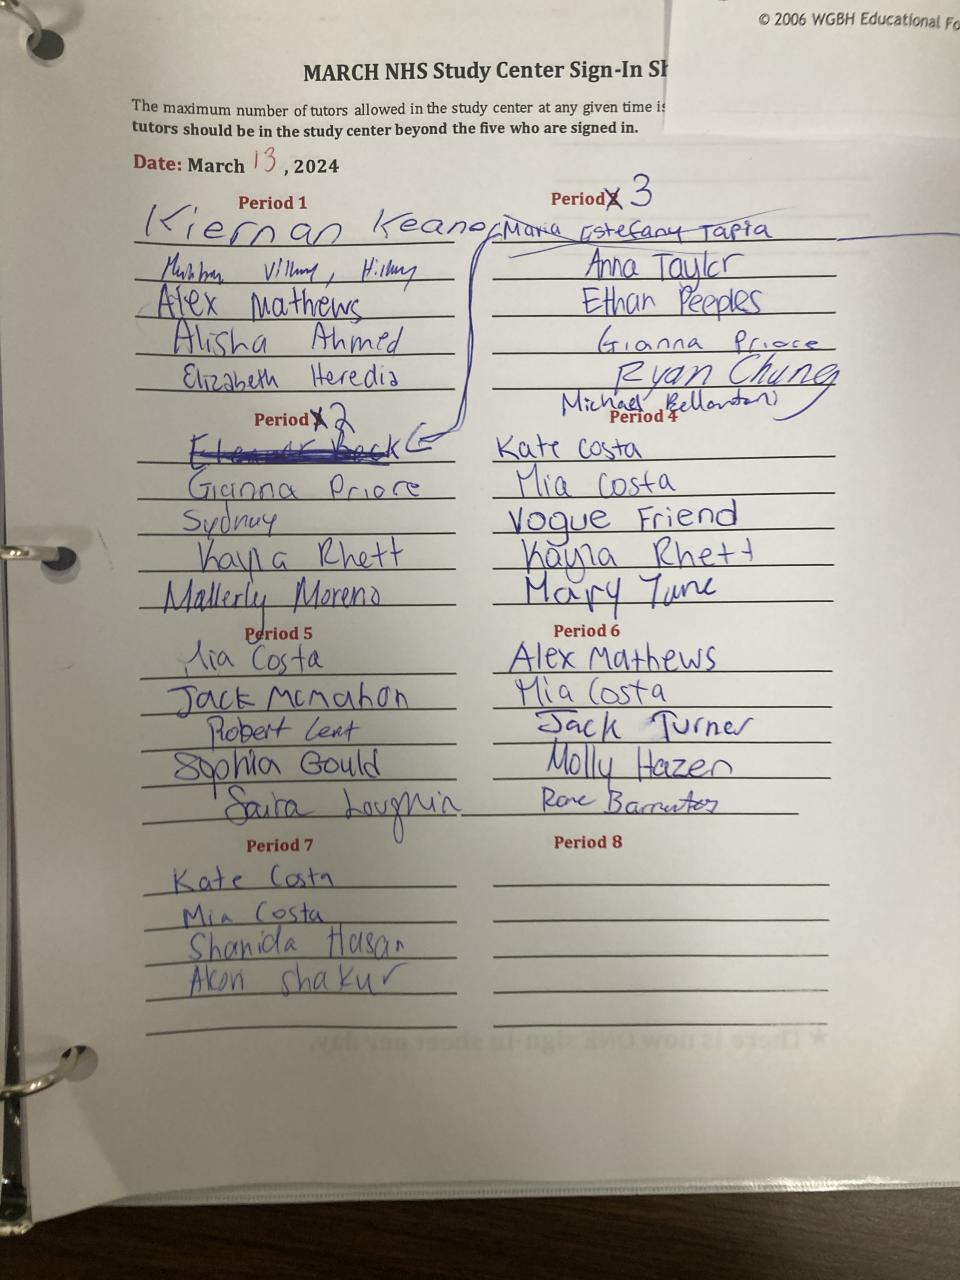 © 2006 WGBH Educational Fo
MARCH NHS Study Center Sign-In Sh
The maximum number of tutors allowed in the study center at any given time is
tutors should be in the study center beyond the five who are signed in.
Date: March 13, 2024
Period 1
Kiernan Keane
Alex Mathews
Alisha Ahmed
Elizabeth Heredia
Period 3
Maria Estefany Tapia
Anna Taylor
Ethan Peeples
Gianna Priore
Ryan Chung
Michael Bellantoni
Period 2
Gianna Priore
Sydney
Kayla Rhett
Mallerly Moreno
Period 4
Kate Costa
Mia Costa
Vogue Friend
Kayla Rhett
Mary
Period 5
Mia Costa
Jack McMahon
Robert Lent
Sophia Gould
Saira Loughlin
Period 6
Alex Mathews
Mia Costa
Jack Turner
Molly Hazen
Period 7
Kate Costa
Mia Costa
Shanida Hasan
Akon Shakur
Period 8